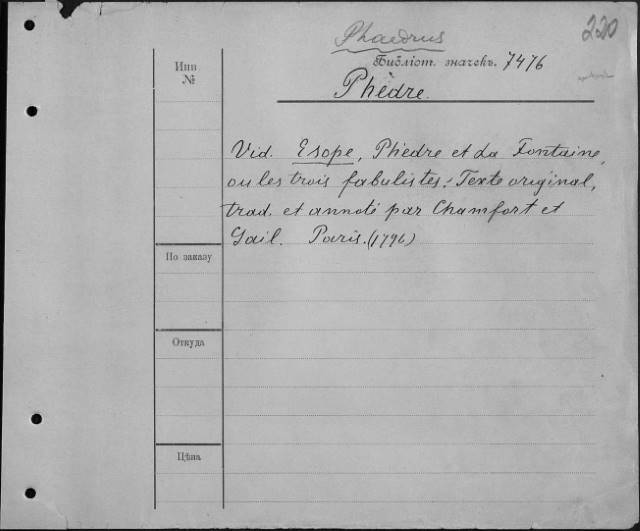 220
Phaedrus
Библіот. значекъ. 7476
Phèdre.
Инв
№
Vid. Esope, Phèdre et La Fontaine,
ou les trois fabulistes. Texte original,
trad. et annoté par Chamfort et
Gail. Paris. (1796)
По заказу
Откуда
Цѣна